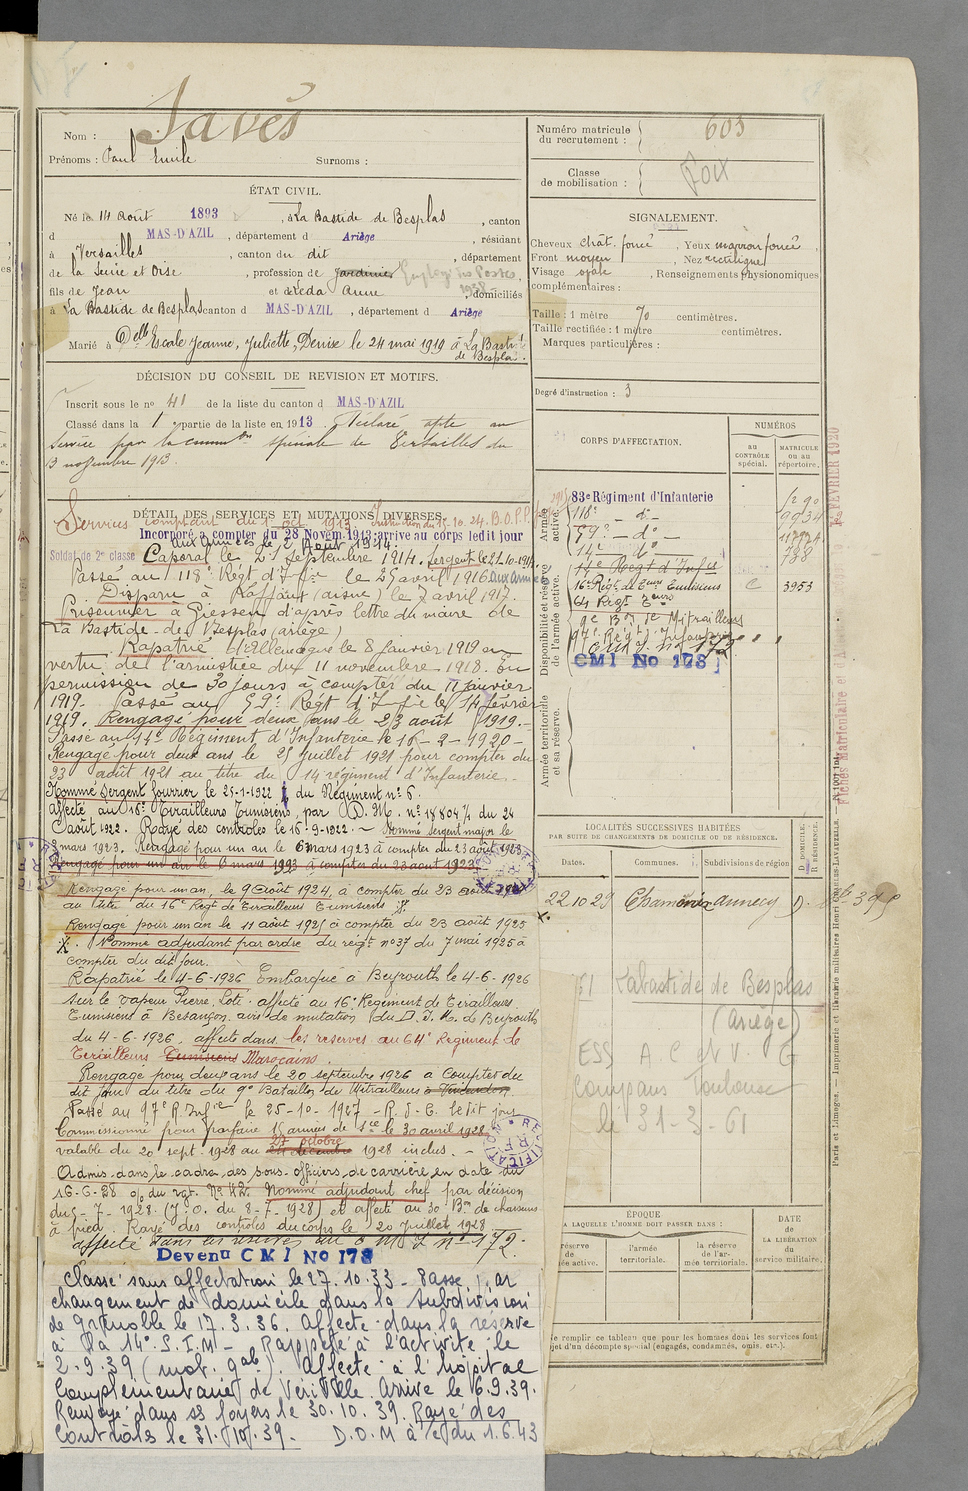 Savès
Nom :
Prénoms : Paul Emile Surnoms :
ÉTAT CIVIL.
Né le 14 Août 1893, à La Bastide de Besplas, canton
d MAS-D'AZIL, département d Ariège, résidant
à Versailles, canton du dit, département
de la Seine et Oise, profession de Jardinier Employé des Postes, 1938
fils de Jean et de Léda Anne, domiciliés
à La Bastide de Besplas canton d MAS-D'AZIL, département d Ariège
Marié à Delle Escale Jeanne, Juliette, Denise le 24 mai 1919 à La Bastide
de Besplas.
DÉCISION DU CONSEIL DE REVISION ET MOTIFS.
Inscrit sous le no 41 de la liste du canton d MAS-D'AZIL
Classé dans la 1 partie de la liste en 1913 Déclaré apte au
service par la commton spéciale de Versailles du
3 novembre 1913.
DÉTAIL DES SERVICES ET MUTATIONS DIVERSES.
Services comptant du 1 oct 1913. Instruction du 15.10.24. B.O.P.P.
Incorporé à compter du 28 Novem. 1913: arrive au corps ledit jour
Aux Armées le 2 Août 1914.
Soldat de 2e classe Caporal le 21 Septembre 1914. Sergent le 21-10-1914
Passé au 118e Régt d'Ifie le 25 avril 1916. aux armées
Disparu à (aisne) le 7 avril 1917.
Prisonnier à Giessen d'après lettre du maire de
La Bastide-de Besplas (ariège)
Rapatrié d'Allemagne le 8 janvier 1919 en
vertu de l'armistice du 11 novembre 1918. En
permission de 30 jours à compter du 11 janvier
1919. Passé au 59e Régt d'Ifie le 14 février
1919. Rengagé pour deux ans le 23 août 1919.
Passé au 14e Régiment d'Infanterie le 16-2-1920 -
Rengagé pour deux ans le 25 juillet 1921 pour compter du
23 août 1921 au titre du 14 régiment d'Infanterie.
Nommé Sergent fourrier le 25-1-1922 du Régiment no 6.
affecté au 16e Tirailleurs Tunisiens, par D.M. no 18804 1/ du 24
août 1922. Rayé des contrôles le 16-9-1922. - Nommé Sergent major le
mars 1923. Rengagé pour un an le 6 mars 1923 à compter du 23 août 1923
Rengagé pour un an le 6 mars 1923 à compter du 23 août 1923
Rengagé pour un an, le 9 Août 1924, à compter du 23 août
au titre du 16e Régt de Tirailleurs Tunisiens
Rengagé pour un an le 11 août 1925 à compter du 23 août 1925
Nommé adjudant par ordre du régt no 37 du 7 mai 1925 à
compter du dit jour.
Rapatrié le 4-6-1926 Embarqué à Beyrouth le 4-6-1926
sur le vapeur Pierre Loti. affecté au 16e Régiment de Tirailleurs
Tunisiens à Besançon. avis de mutation du de Beyrouth
du 4-6-1926. affecté dans les réserves au 64e Régiment de
Tirailleurs Tunisiens Marocains.
Rengagé pour deux ans le 20 septembre 1926 à compter du
dit jour au titre du 9e Bataillon de Mitrailleurs
Passé au 97e R. Infie le 25-10-1927 - ledit jour
Commissionné pour parfaire 15 années de sce le 30 avril 1928
27 octobre
valable du 20 sept. 1928 au décembre 1928 inclus. -
Admis dans le cadre des sous-officiers de carrière en date du
16-6-28 o/ du rgt. Nommé adjudant chef par décision
du 5-7-1928 (J.O. du 8-7-1928) et affecté au 30 Bon de chasseurs
à pied. Rayé des contrôles du corps le 20 juillet 1928
affecté dans les réserves au C M I no 172.
Devenu C M I No 178
Classé sans affectation le 27.10.33 - Passe par
changement de domicile dans la subdivision
de grenoble le 17.3.36. Affecté dans la réserve
à la 14e S.I.M - Rappelé à l'activité le
2.9.39 (mob. gale). Affecté à l'hôpital
complémentaire de. Arrivé le 6.9.39.
Renvoyé dans ses foyers le 30.10.39. Rayé des
contrôles le 31.10.39. D.O.M du 1.6.43
Numéro matricule du recrutement : 603
Classe de mobilisation : Foix
SIGNALEMENT.
Cheveux chât. foncé, Yeux marron foncé,
Front moyen, Nez rectiligne
Visage ovale, Renseignements physionomiques
complémentaires :
Taille : 1 mètre 70 centimètres.
Taille rectifiée : 1 mètre centimètres.
Marques particulières :
Degré d'instruction : 3
CORPS D'AFFECTATION.
NUMÉROS
au CONTRÔLE spécial.
MATRICULE ou au répertoire.
Armée active.
83e Régiment d'Infanterie
118e - do -
59e - do - 11774
14e do 738
Disponibilité et réserve de l'armée active.
14e Régt d'Infie
16e Régt de Teurs Tunisiens C 3953
64 Régt Teurs
9e Bon de Mitrailleurs
97e Régt Infanterie
C M I no 172
CMI No 178
Armée territoriale et sa réserve.
Fiches Matriculaire
LOCALITÉS SUCCESSIVES HABITÉES
PAR SUITE DE CHANGEMENTS DE DOMICILE OU DE RÉSIDENCE.
Dates. Communes. Subdivisions de région D. DOMICILE. R. RÉSIDENCE.
22 10 29 Chamonix annecy D.
61 Labastide de Besplas
(Ariège)
ESS A.C et V. G
Compans Toulouse
le 31-3-61
ÉPOQUE
A LAQUELLE L'HOMME DOIT PASSER DANS :
DATE de LA LIBÉRATION du service militaire.
réserve de l'armée active.
l'armée territoriale.
la réserve de l'armée territoriale.
de remplir ce tableau que pour les hommes dont les services font
objet d'un décompte spécial (engagés, condamnés, omis, etc.).
Paris et Limoges. — Imprimerie et librairie militaires Henri CHARLES-LAVAUZELLE.
RECTIFICATION R F